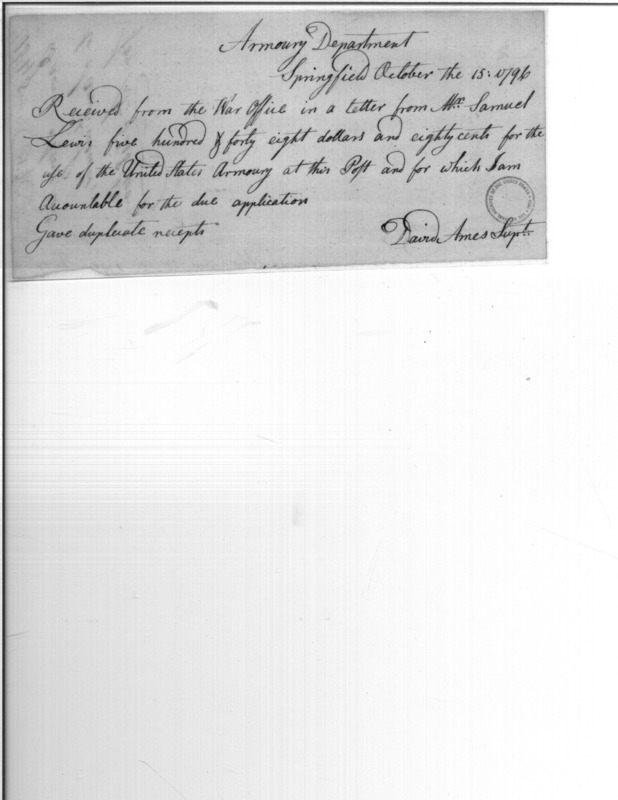 Armoury Department
Springfield October the 15: 1796
Received from the War Office in a letter from Mr. Samuel
Lewis five hundred & forty eight dollars and eighty cents for the
use of the United States Armoury at this Post and for which I am
Accountable for the due application
Gave duplicate receipts
David Ames Supt.